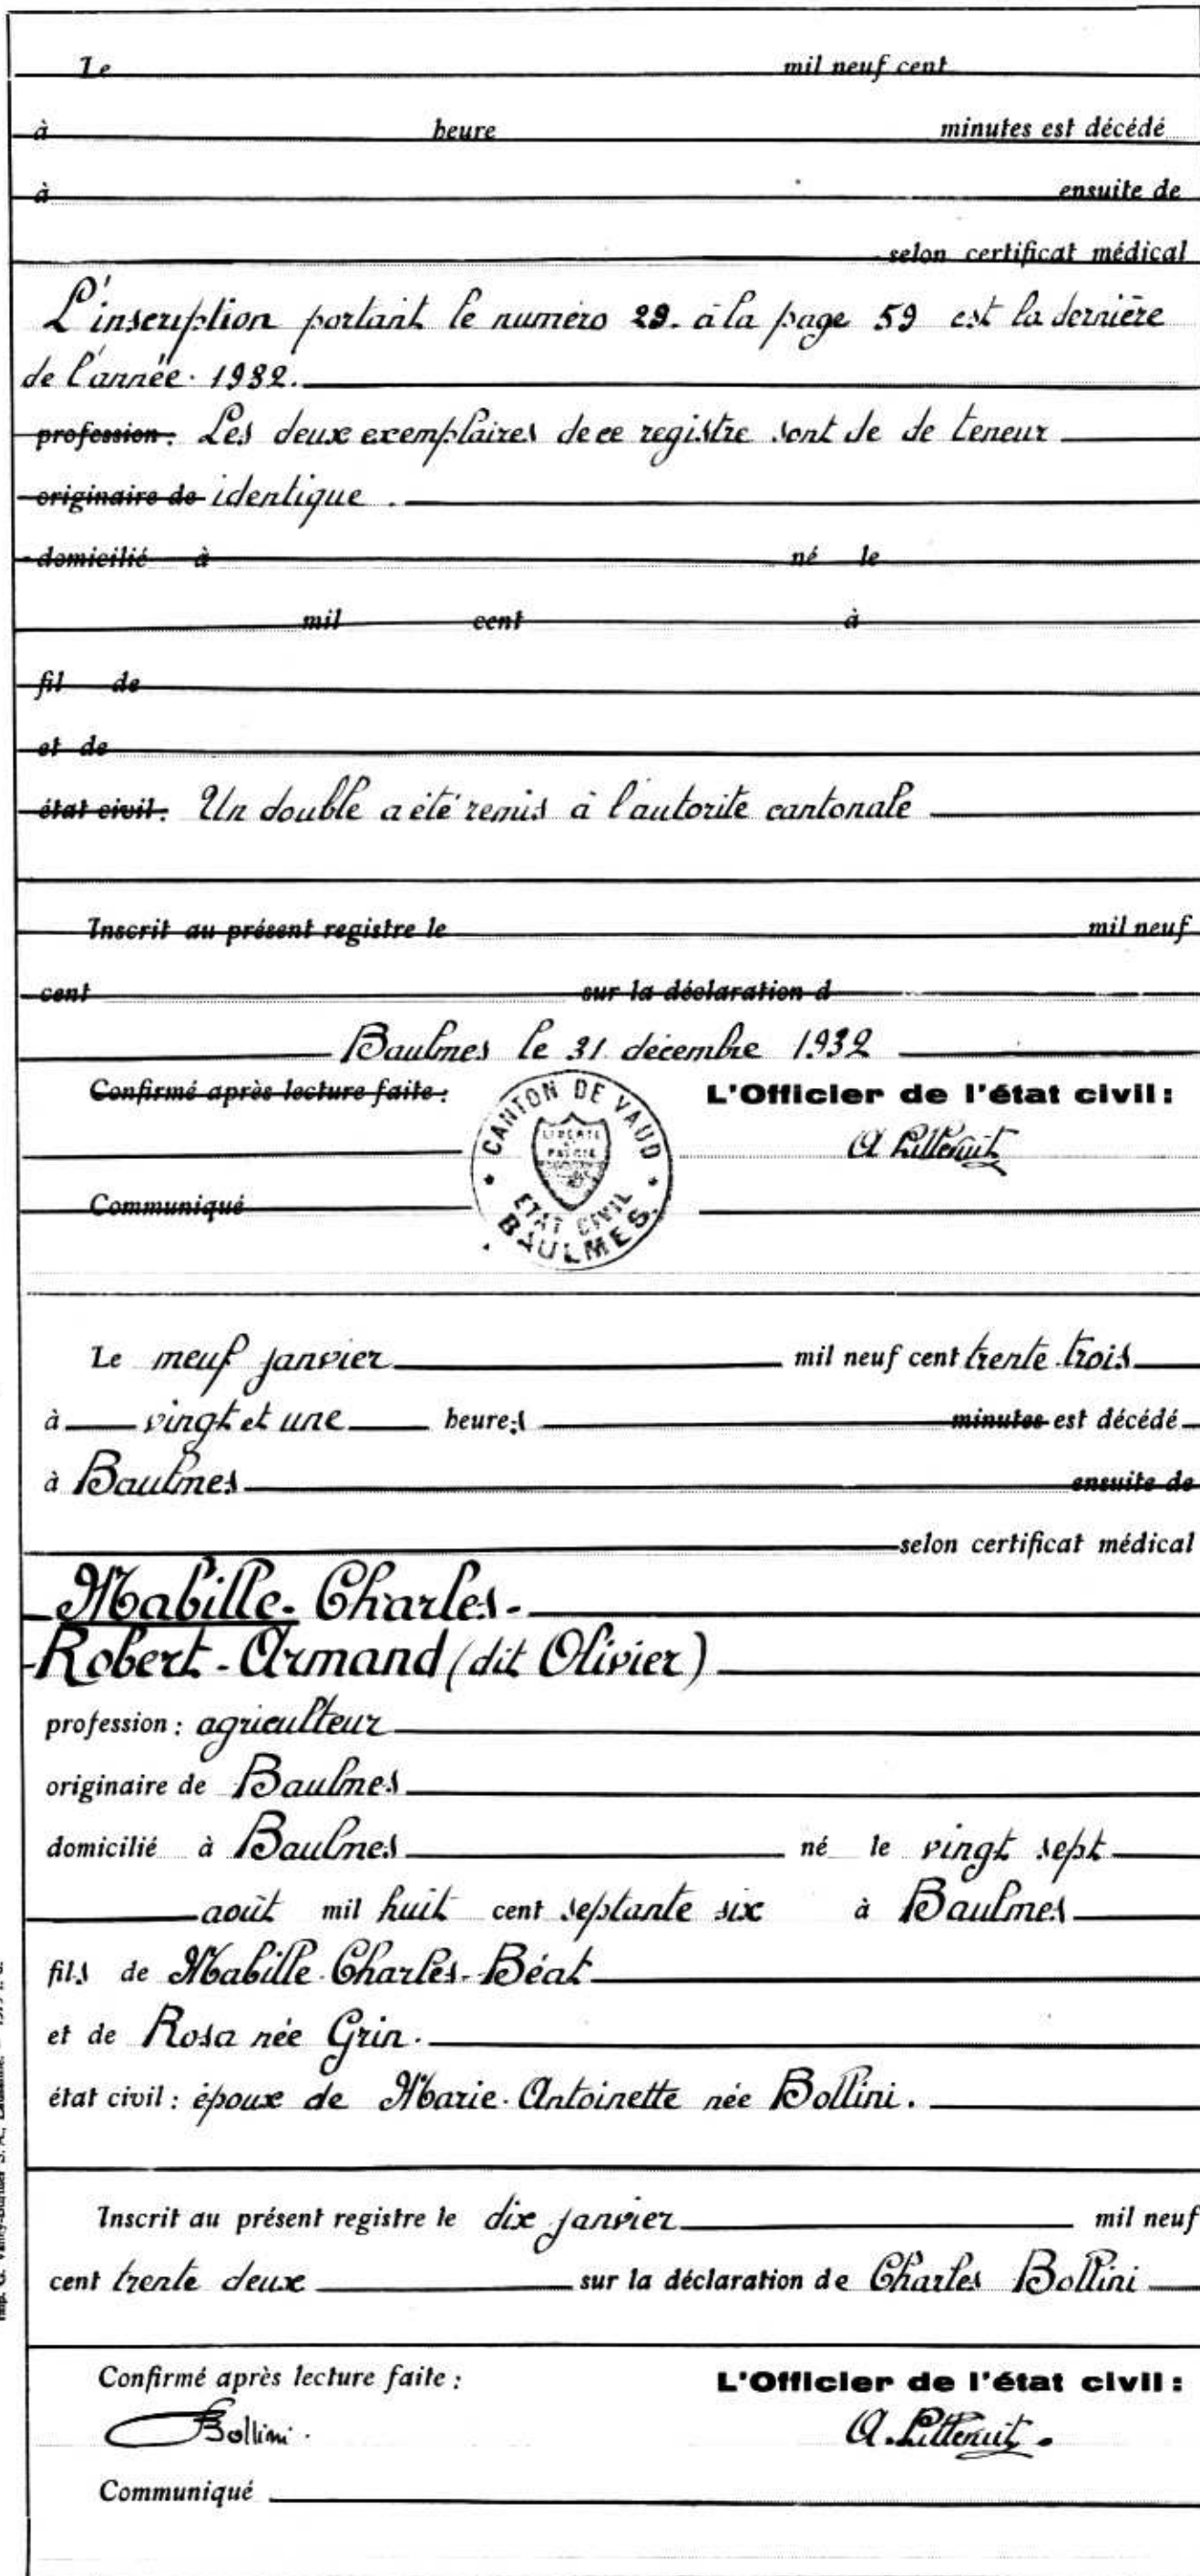 Le mil neuf cent
à heure minutes est décédé
à ensuite de
selon certificat médical
L'inscription portant le numéro 29. à la page 59 est la dernière
de l'année. 1932.
profession: Les deux exemplaires de ce registre sont de de teneur
originaire de identique.
domicilié à né le
mil cent à
fil de
et de
état civil: Un double a été remis à l'autorité cantonale
Inscrit au présent registre le mil neuf
cent sur la déclaration d
Baulmes le 31. décembre 1932
Confirmé après lecture faite: L'Officier de l'état civil:
CANTON DE VAUD
LIBERTÉ
ET
PATRIE
ETAT CIVIL
BAULMES.
Communiqué
Le neuf janvier mil neuf cent trente-trois
à vingt et une heures minutes est décédé
à Baulmes ensuite de
selon certificat médical
Mabille-Charles-
Robert-Armand (dit Olivier)
profession: agriculteur
originaire de Baulmes
domicilié à Baulmes né le vingt sept
août mil huit cent septante six à Baulmes
fils de Mabille-Charles-Béat
et de Rosa née Grin.
état civil: époux de Marie-Antoinette née Bollini.
Inscrit au présent registre le dix janvier mil neuf
cent trente deux sur la déclaration de Charles Bollini
Confirmé après lecture faite: L'Officier de l'état civil:
Bollini.
Communiqué